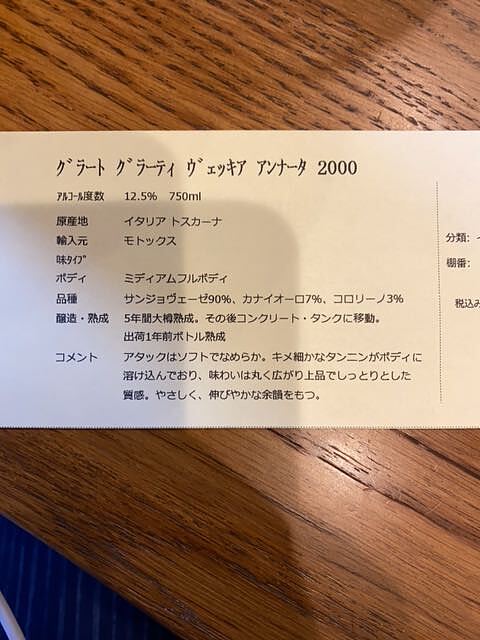 ｸﾞﾗｰﾄ ｸﾞﾗｰﾃｨ ｳﾞｪｯｷｱ ｱﾝﾅｰﾀ 2000
ｱﾙｺｰﾙ度数 12.5% 750ml
原産地 イタリア トスカーナ
輸入元 モトックス
味ﾀｲﾌﾟ
ボディ ミディアムフルボディ
品種 サンジョヴェーゼ90%、カナイオーロ7%、コロリーノ3%
醸造・熟成 5年間大樽熟成。その後コンクリート・タンクに移動。
出荷1年前ボトル熟成
コメント アタックはソフトでなめらか。キメ細かなタンニンがボディに
溶け込んでおり、味わいは丸く広がり上品でしっとりとした
質感。やさしく、伸びやかな余韻をもつ。
分類:
棚番:
税込み